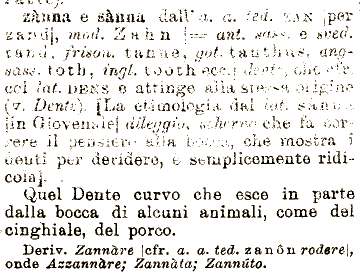 zànna e sànna dall' a. a. ted. ZAN |per
zand|, mod. Zahn |= ant. sass. e sved.
tand, frison. tanne, got. tanthus, ang-
sass. toth, ingl. tooth ecc.| dente, che
col lat. DENS e attinge alla stessa origine
(v. Dente). [La etimologia dal lat.
|in Giovenale| dileggio, scherno che fa cor-
rere il pensiero alla bocca, che mostra i
denti per deridere, è semplicemente ridi-
cola].
Quel Dente curvo che esce in parte
dalla bocca di alcuni animali, come del
cinghiale, del porco.
Deriv. Zannàre |cfr. a. a. ted. zanôn rodere|,
onde Azzannàre; Zannàta; Zannúto.